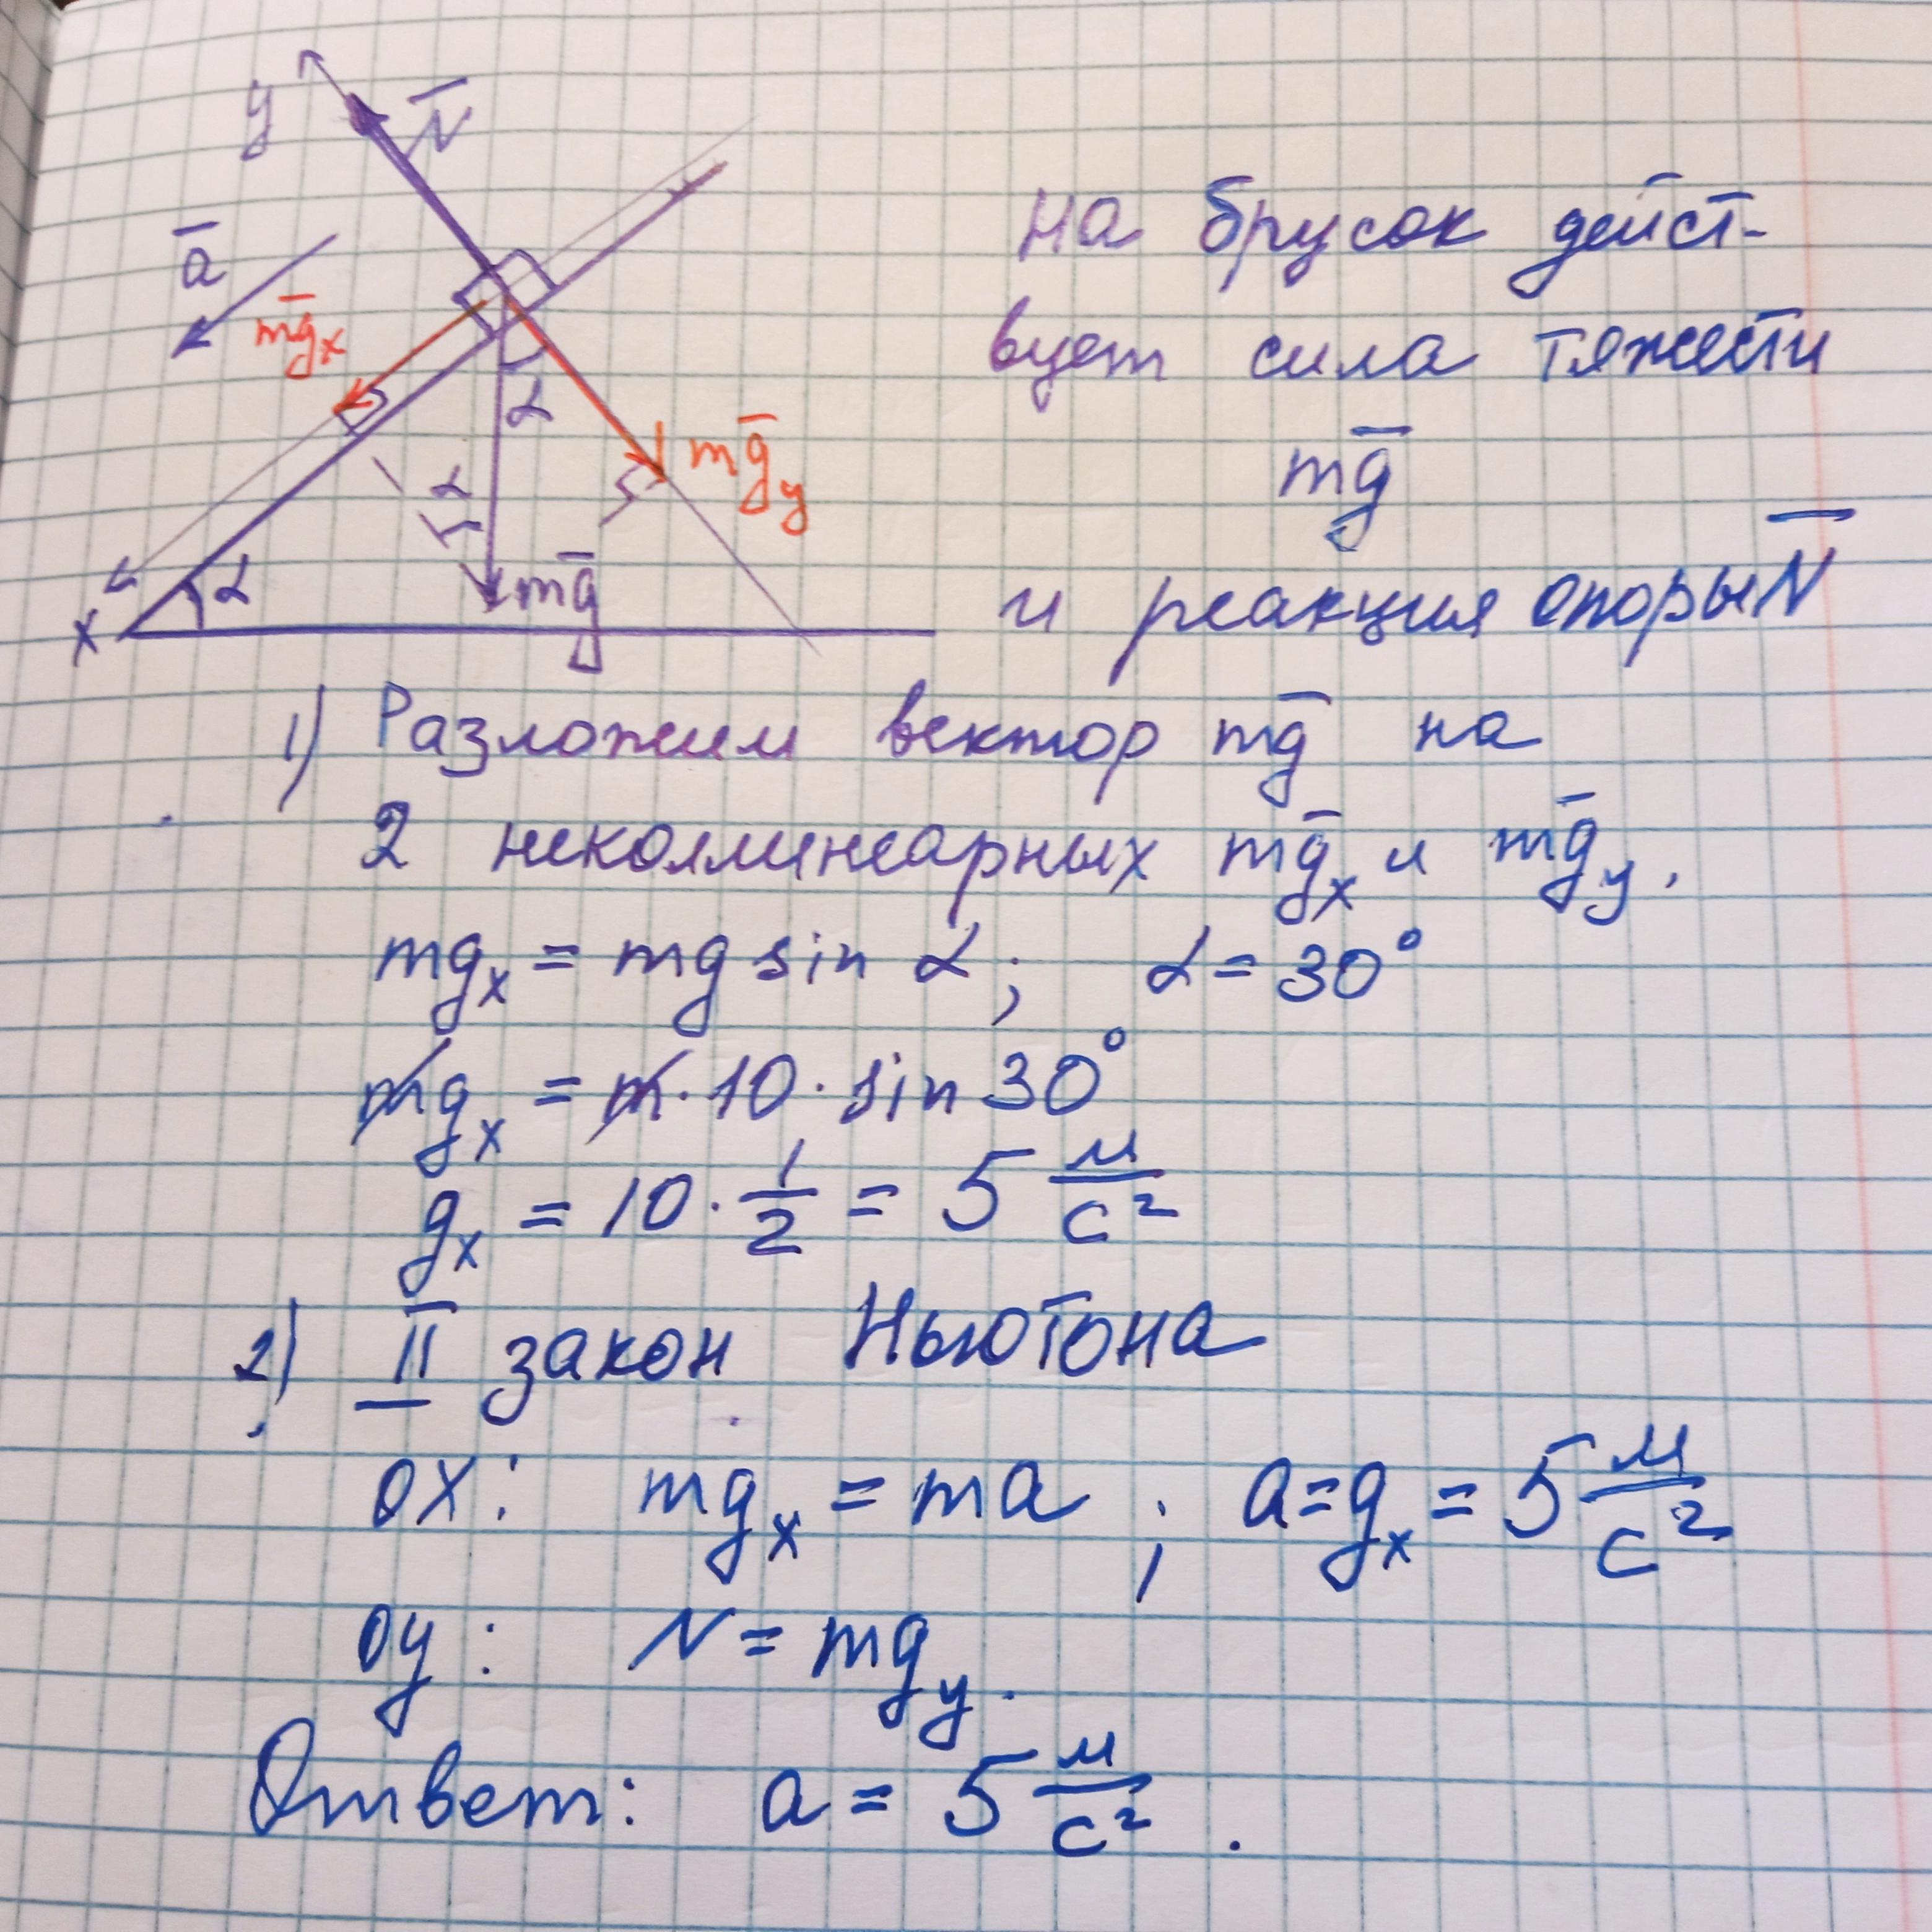 y
N̅
a̅
mg̅x
α
mg̅y
α
mg̅
α
x
На брусок дейст-
вует сила тяжести
mg̅
и реакция опоры N̅
1) Разложим вектор mg̅ на
2 неколлинеарных mg̅x и mg̅y.
mgx = mg sin α; α = 30°
mgx = m · 10 · sin 30°
gx = 10 · 1/2 = 5 м/с²
2) II закон Ньютона
OX: mgx = ma ; a = gx = 5 м/с²
Oy: N = mgy.
Ответ: a = 5 м/с².